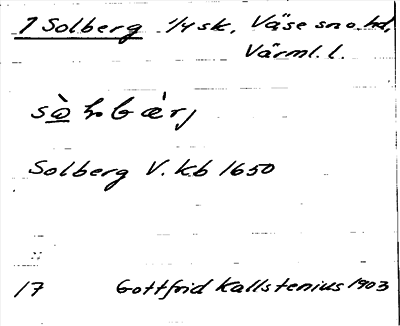 1 Solberg 1/4 sk, Väse sn o. hd,
Värml. l.
Solberg V. kb 1650
17 Gottfrid Kallstenius 1903